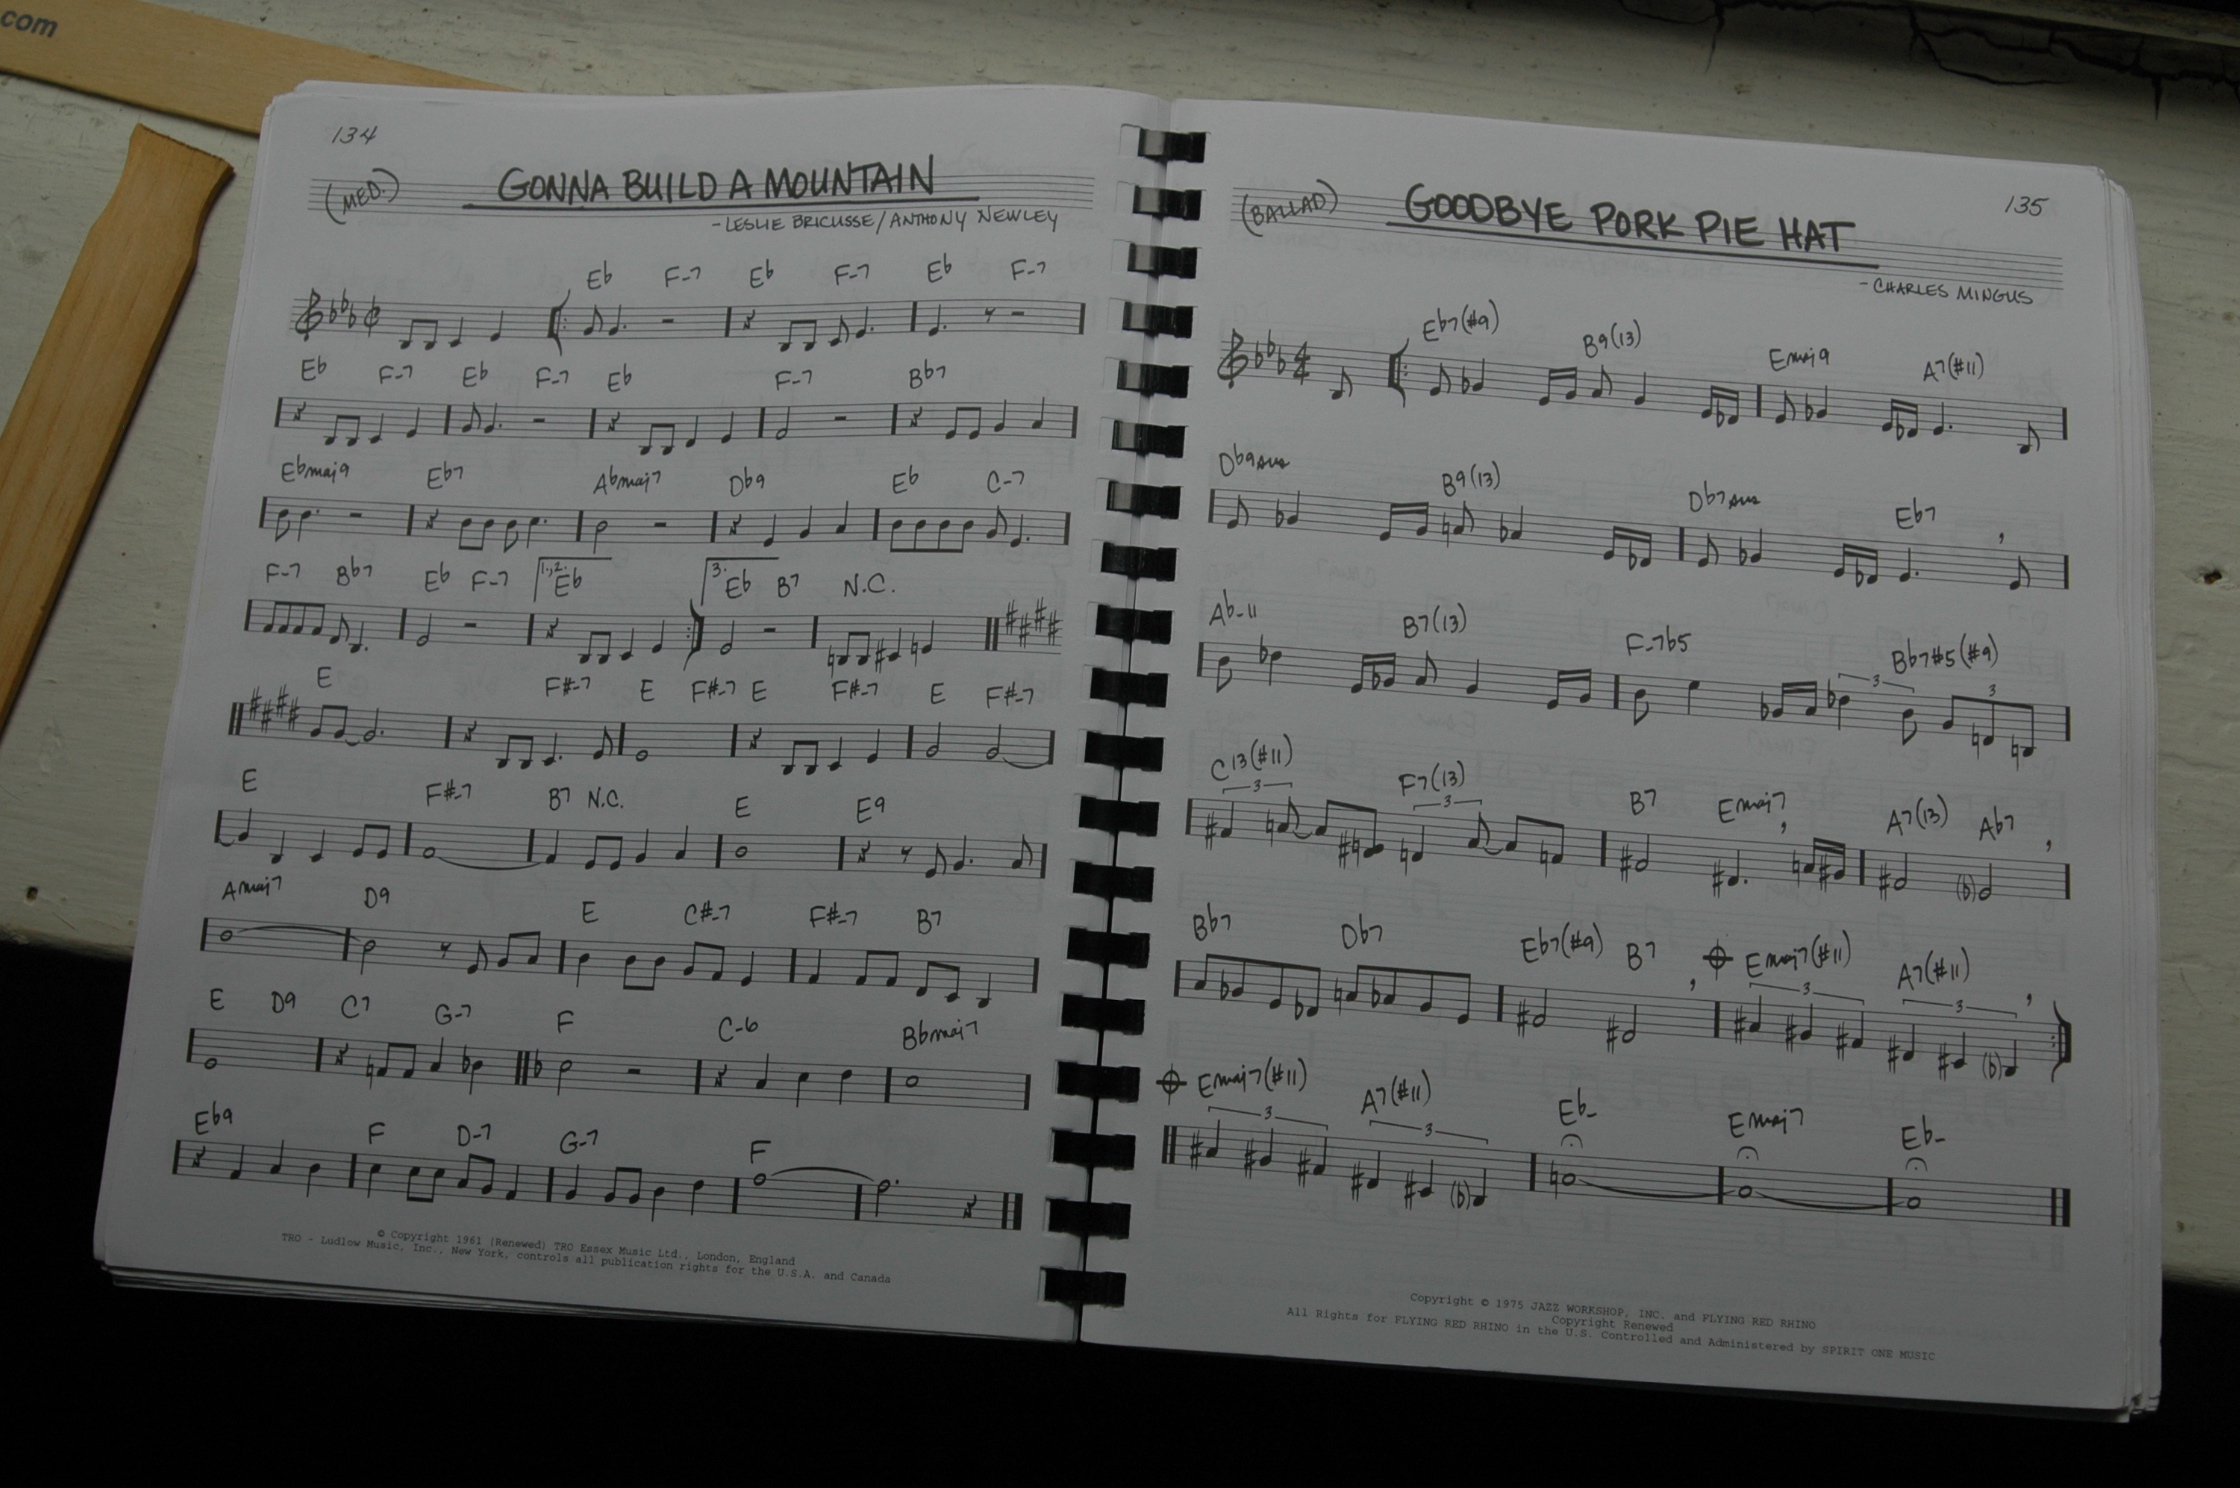 com
134
GONNA BUILD A MOUNTAIN
(MED.)
- LESLIE BRICUSSE/ANTHONY NEWLEY
Eb F-7 Eb F-7 Eb F-7
Eb F-7 Eb F-7 Eb F-7 Bb7
Ebmaj9 Eb7 Abmaj7 Db9 Eb C-7
F-7 Bb7 Eb F-7 1.,2. Eb 3. Eb B7 N.C.
E F#-7 E F#-7 E F#-7 E F#-7
E F#-7 B7 N.C. E E9
Amaj7 D9 E C#-7 F#-7 B7
E D9 C7 G-7 F C-6 Bbmaj7
Eb9 F D-7 G-7 F
© Copyright 1961 (Renewed) TRO Essex Music Ltd., London, England
TRO - Ludlow Music, Inc., New York, controls all publication rights for the U.S.A. and Canada
135
(BALLAD)
GOODBYE PORK PIE HAT
- CHARLES MINGUS
Eb7(#9) B9(13) Emaj9 A7(#11)
Db9sus B9(13) Db7sus Eb7
Ab-11 B7(13) F-7b5 Bb7#5(#9)
3 3
C13(#11) F7(13) B7 Emaj7 A7(13) Ab7
3 3
Bb7 Db7 Eb7(#9) B7 Emaj7(#11) A7(#11)
3 3
Emaj7(#11) A7(#11) Eb- Emaj7 Eb-
3 3
Copyright © 1975 JAZZ WORKSHOP, INC. and FLYING RED RHINO
Copyright Renewed
All Rights for FLYING RED RHINO in the U.S. Controlled and Administered by SPIRIT ONE MUSIC